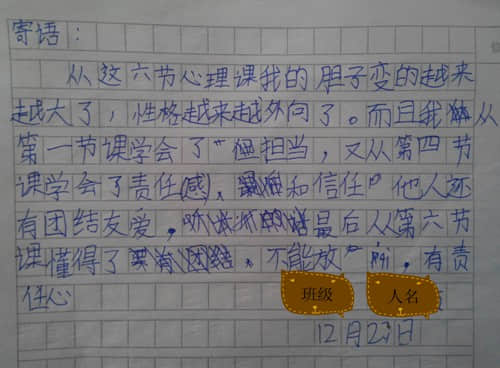 寄语：
从这六节心理课我的胆子变的越来
越大了，性格越来越外向了。而且我从
第一节课学会了"担当，又从第四节
课学会了责任感，和信任"他人还
有团结友爱，最后从第六节
课懂得了团结，不能放"，有责
任心
班级 人名
12月23日